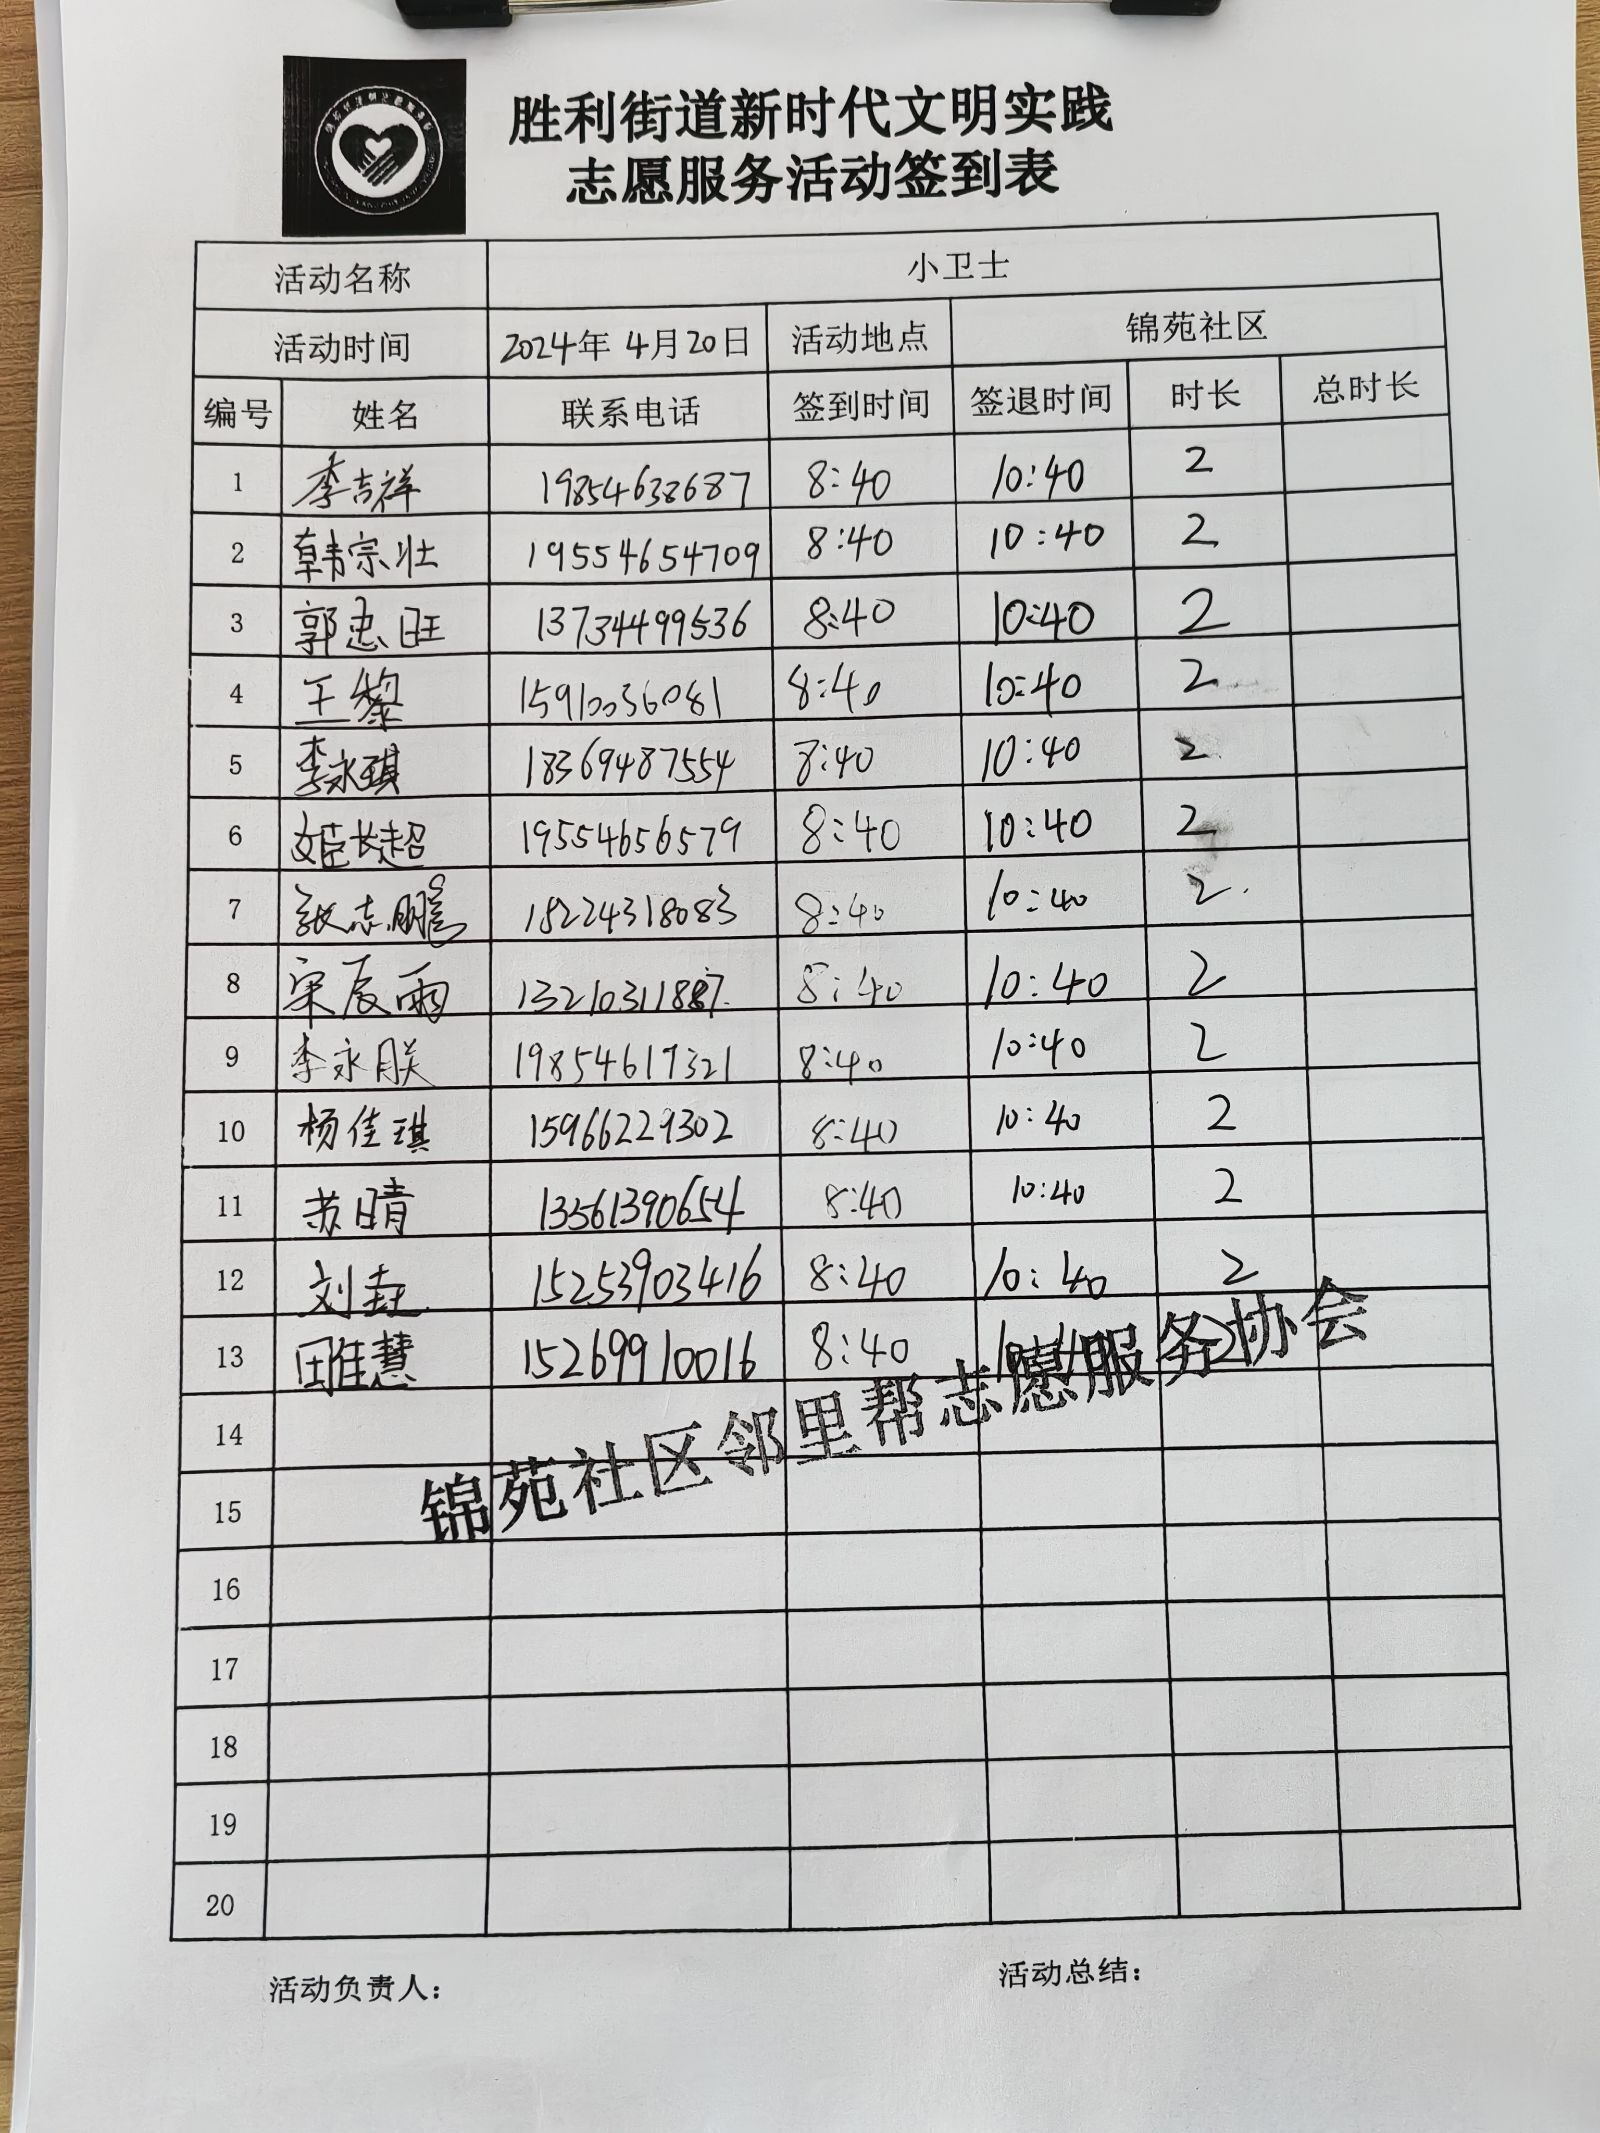 胜利街道新时代文明实践
志愿服务活动签到表
活动名称 小卫士
活动时间 2024年 4月20日 活动地点 锦苑社区
编号 姓名 联系电话 签到时间 签退时间 时长 总时长
1 李吉祥 19854638687 8:40 10:40 2
2 韩宗壮 19554654709 8:40 10:40 2
3 郭忠旺 13734499536 8:40 10:40 2
4 王黎 15910036081 8:40 10:40 2
5 李永琪 18369487554 8:40 10:40 2
6 姬长超 19554656579 8:40 10:40 2
7 张志鹏 15224318083 8:40 10:40 2
8 宋辰雨 13210311887 8:40 10:40 2
9 李永朕 19854617321 8:40 10:40 2
10 杨佳琪 15966229302 8:40 10:40 2
11 苏晴 13561390654 8:40 10:40 2
12 刘垚 15253903416 8:40 10:40 2
13 田雅慧 15269910016 8:40 2
14
锦苑社区邻里帮志愿服务协会
15
16
17
18
19
20
活动负责人： 活动总结：